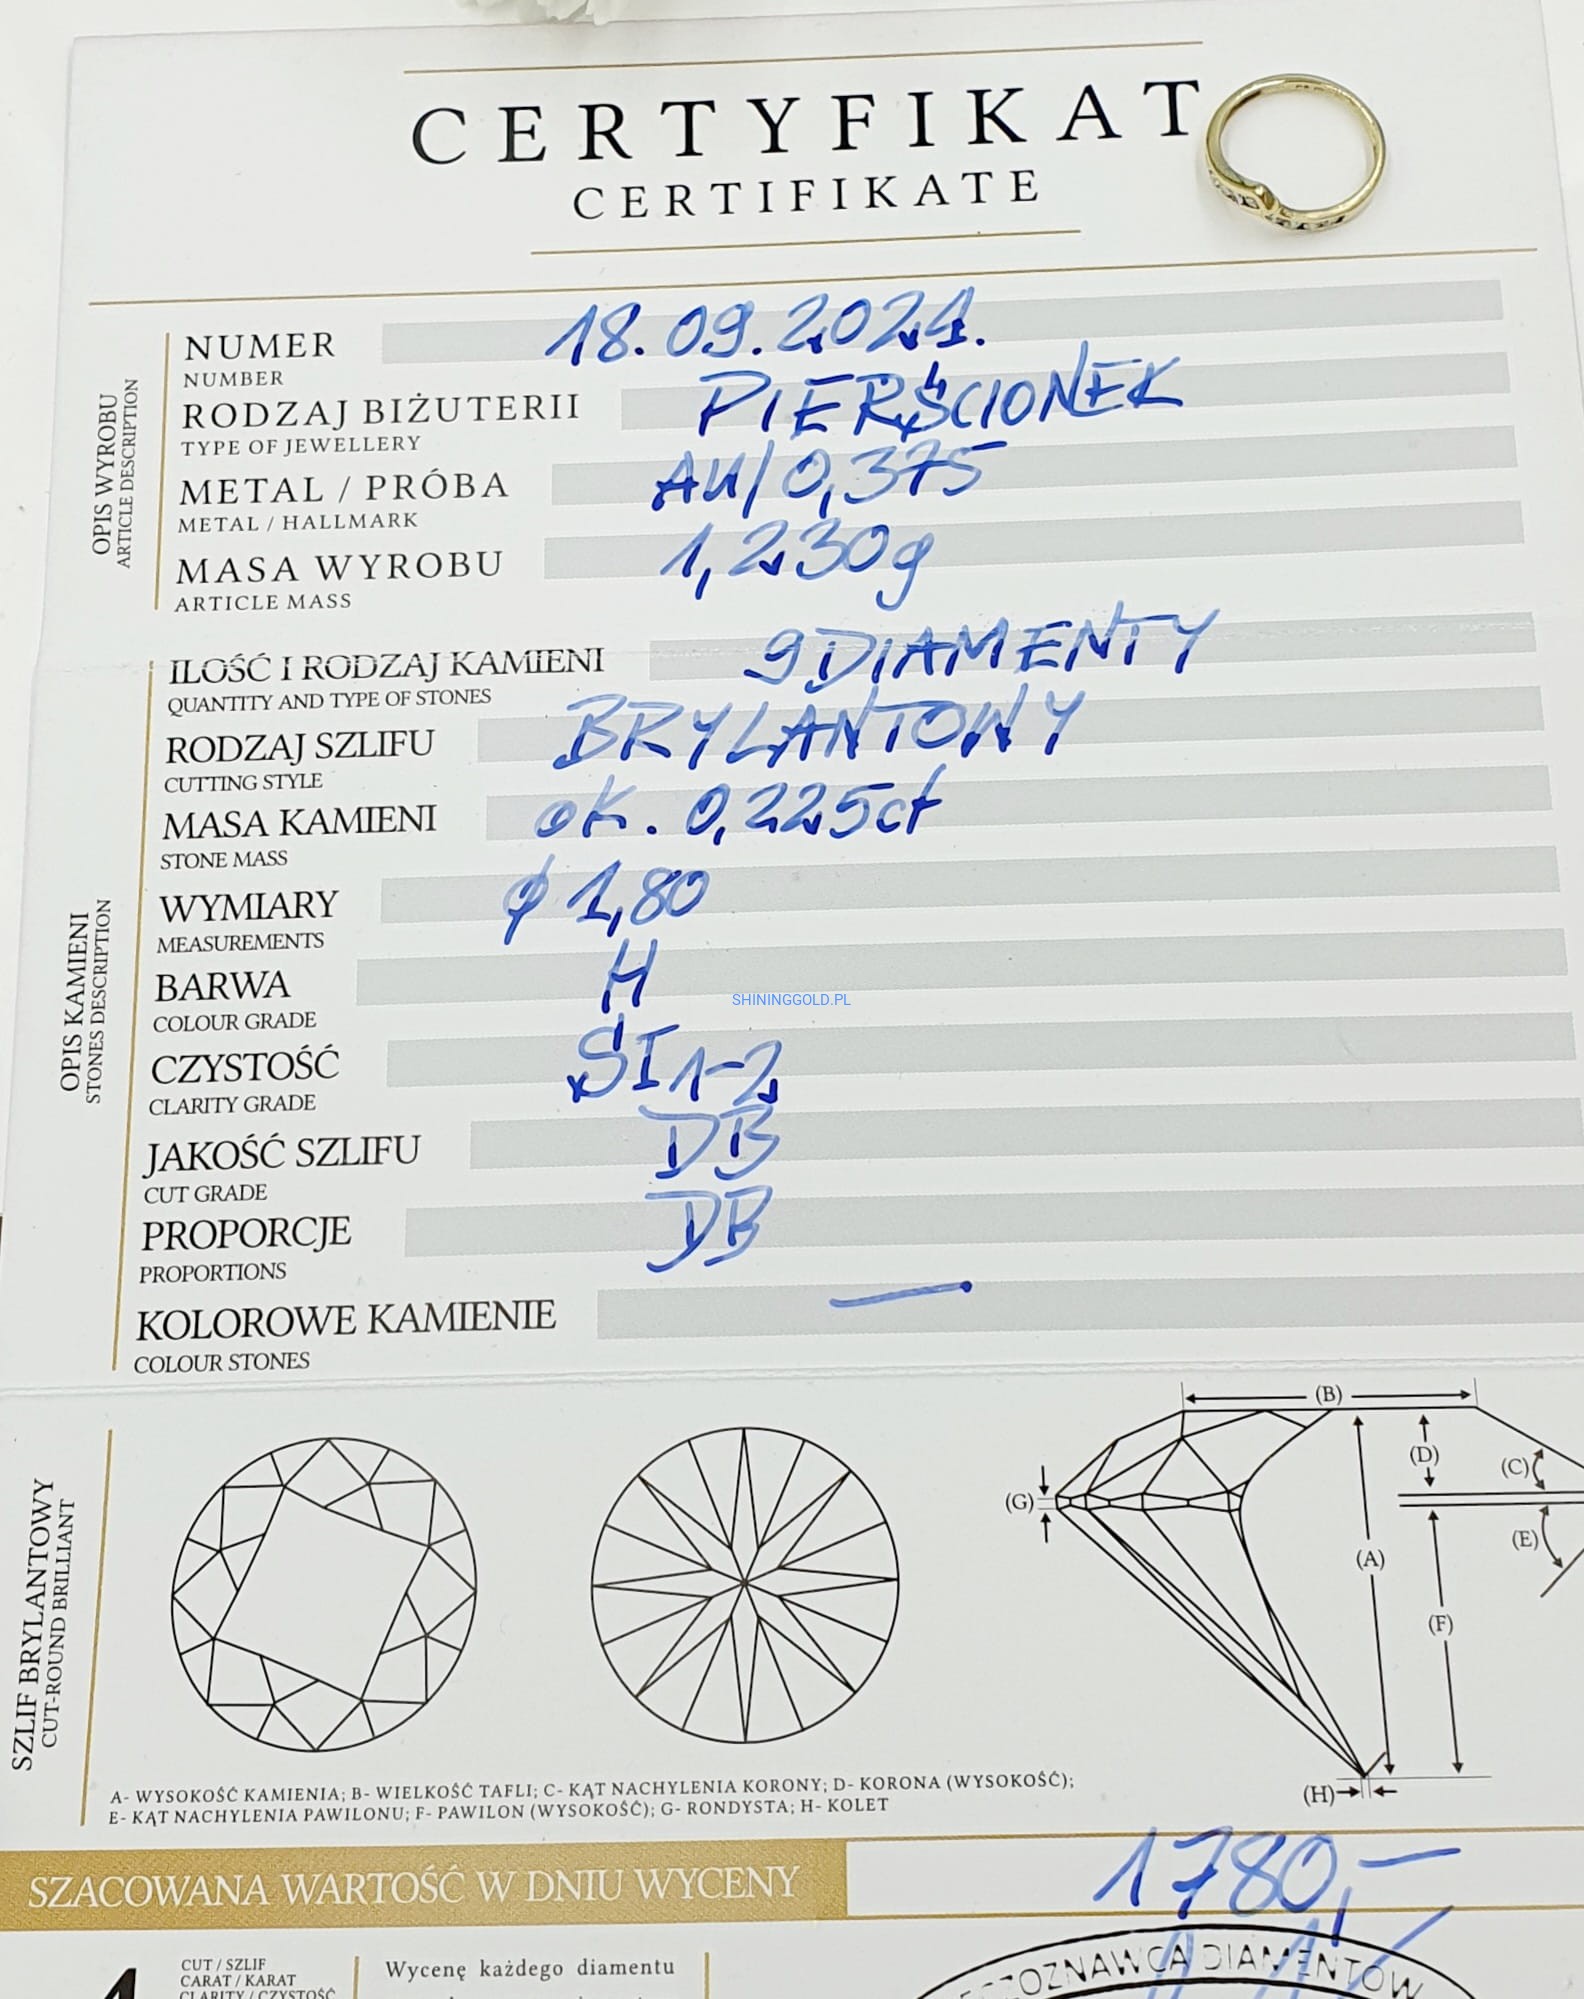 CERTYFIKAT
CERTIFIKATE
OPIS WYROBU
ARTICLE DESCRIPTION
NUMER 18.09.2024.
NUMBER
RODZAJ BIŻUTERII PIERŚCIONEK
TYPE OF JEWELLERY
METAL / PRÓBA AU/0,375
METAL / HALLMARK
MASA WYROBU 1,230g
ARTICLE MASS
OPIS KAMIENI
STONES DESCRIPTION
ILOŚĆ I RODZAJ KAMIENI 9 DIAMENTY
QUANTITY AND TYPE OF STONES
RODZAJ SZLIFU BRYLANTOWY
CUTTING STYLE
MASA KAMIENI OK. 0,225ct
STONE MASS
WYMIARY ϕ 1,80
MEASUREMENTS
BARWA H
COLOUR GRADE
SHININGGOLD.PL
CZYSTOŚĆ SI 1-2
CLARITY GRADE
JAKOŚĆ SZLIFU DB
CUT GRADE
PROPORCJE DB
PROPORTIONS
KOLOROWE KAMIENIE —
COLOUR STONES
SZLIF BRYLANTOWY
CUT-ROUND BRILLIANT
(B)
(D)
(C)
(G)
(E)
(A)
(F)
(H)
A- WYSOKOŚĆ KAMIENIA; B- WIELKOŚĆ TAFLI; C- KĄT NACHYLENIA KORONY; D- KORONA (WYSOKOŚĆ);
E- KĄT NACHYLENIA PAWILONU; F- PAWILON (WYSOKOŚĆ); G- RONDYSTA; H- KOLET
SZACOWANA WARTOŚĆ W DNIU WYCENY 1780,—
CUT / SZLIF
CARAT / KARAT
CLARITY / CZYSTOŚĆ
Wycenę każdego diamentu
DIAMENTÓW